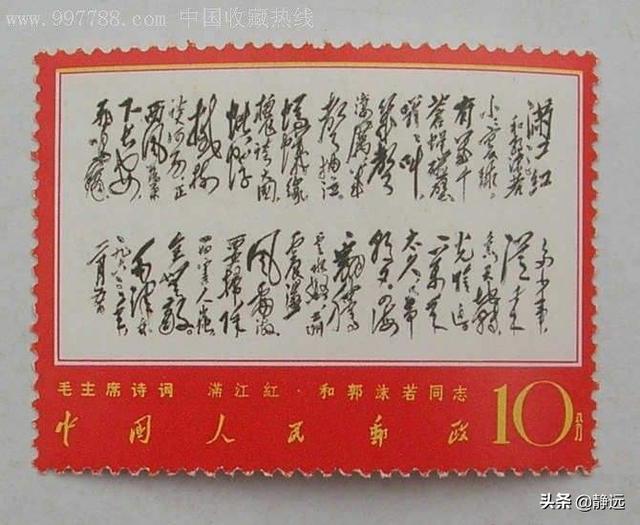 www.997788.com 中国收藏热线
满江红
和郭沫若
小小寰球
有几个
苍蝇碰壁
嗡嗡叫
几声
凄厉几
声抽泣
蚂蚁缘
槐夸大国
蚍蜉
撼树
谈何易正
西风落叶
下长安
飞鸣镝
多少事
从来急
天地转
光阴迫
一万年
太久只争
朝夕四海
翻腾
云水怒五洲
震荡
风雷激
要扫除
一切害人虫
全无敌
毛泽东
一九六三年
二月五日
毛主席诗词 满江紅·和郭沫若同志
中国人民邮政 10分
头条 @静远